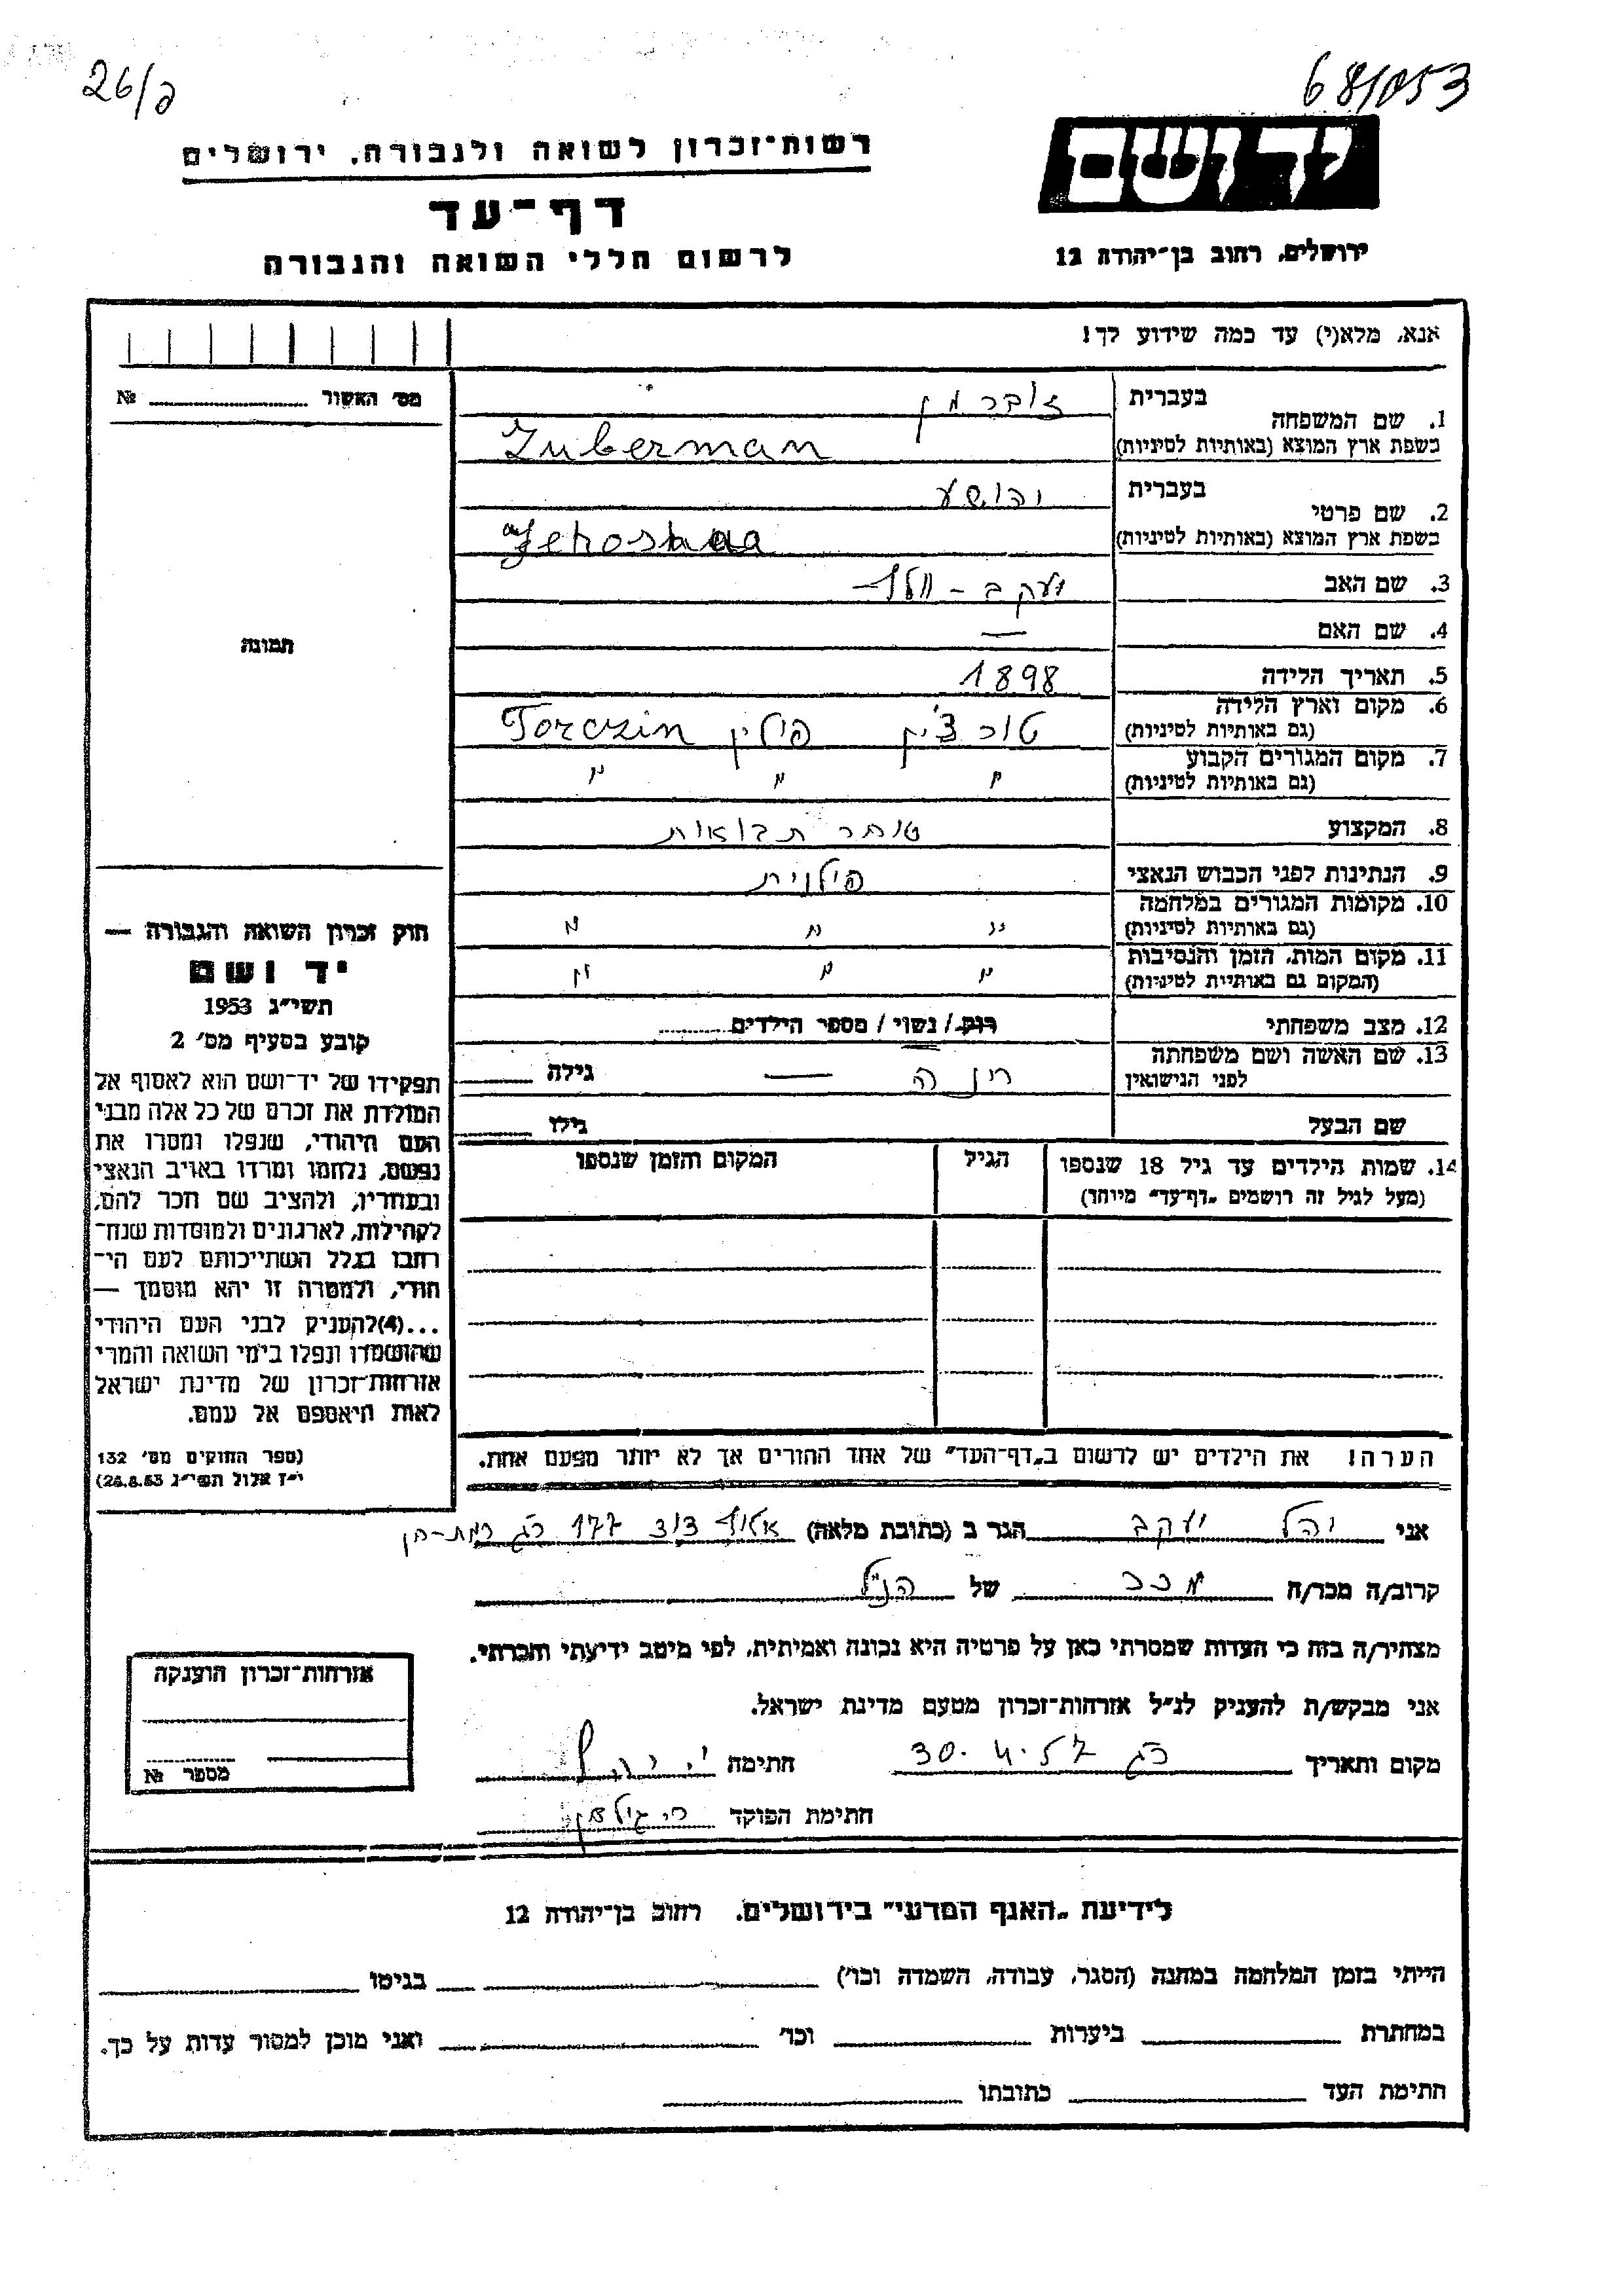 26/כ
68/053
יד ושם
רשות־זכרון לשואה ולגבורה, ירושלים
דף־עד
לרשום חללי השואה והגבורה
ירושלים, רחוב בן־יהודה 12
אנא, מלא(י) עד כמה שידוע לך!
מס׳ האשור № 
1. שם המשפחה
בעברית זוברמן
בשפת ארץ המוצא (באותיות לטיניות) Zuberman
2. שם פרטי
בעברית יהושע
בשפת ארץ המוצא (באותיות לטיניות) Jehoshua
3. שם האב יעקב -
4. שם האם —
5. תאריך הלידה 1898
6. מקום וארץ הלידה
(גם באותיות לטיניות) טורצ'ין פולין Torczin
7. מקום המגורים הקבוע
(גם באותיות לטיניות) " " "
8. המקצוע סוחר תבואות
9. הנתינות לפני הכבוש הנאצי פולנית
10. מקומות המגורים במלחמה
(גם באותיות לטיניות) " " "
11. מקום המות, הזמן והנסיבות
(המקום גם באותיות לטיניות) " " "
12. מצב משפחתי רווק / נשוי / מספר הילדים
13. שם האשה ושם משפחתה
לפני הנישואין חנה — גילה
שם הבעל גילו
14. שמות הילדים עד גיל 18 שנספו
(מעל לגיל זה רושמים „דף־עד" מיוחד)
הגיל
המקום והזמן שנספו
הערה! את הילדים יש לרשום ב„דף־העד" של אחד ההורים אך לא יותר מפעם אחת.
תמונה
חוק זכרון השואה והגבורה —
יד ושם
תשי״ג 1953
קובע בסעיף מס׳ 2
תפקידו של יד־ושם הוא לאסוף אל
המולדת את זכרם של כל אלה מבני
העם היהודי, שנפלו ומסרו את
נפשם, נלחמו ומרדו באויב הנאצי
ובעוזריו, ולהציב שם וזכר להם,
לקהילות, לארגונים ולמוסדות שנח־
רבו בגלל השתייכותם לעם הי־
הודי, ולמטרה זו יהא מוסמך —
...(4)להעניק לבני העם היהודי
שהושמדו ונפלו בימי השואה והמרי
אזרחות־זכרון של מדינת ישראל
לאות היאספם אל עמם.
(ספר החוקים מס׳ 132
י״ז אלול תשי״ג 26.8.53)
אני יהל יעקב הגר ב (כתובת מלאה) אלוף דוד 177 רג רמת-חן
קרוב/ה מכר/ה מכר של הנ״ל
מצהיר/ה בזה כי העדות שמסרתי כאן על פרטיה היא נכונה ואמיתית, לפי מיטב ידיעתי והכרתי.
אני מבקש/ת להעניק לנ״ל אזרחות־זכרון מטעם מדינת ישראל.
מקום ותאריך רג 30.4.57 חתימה י. יהל
חתימת הפוקד
אזרחות־זכרון הוענקה
מספר №
לידיעת „האגף המדעי" בירושלים, רחוב בן־יהודה 12
הייתי בזמן המלחמה במחנה (הסגר, עבודה, השמדה וכו׳) בגיטו
במחתרת ביערות וכו׳ ואני מוכן למסור עדות על כך.
חתימת העד כתובתו